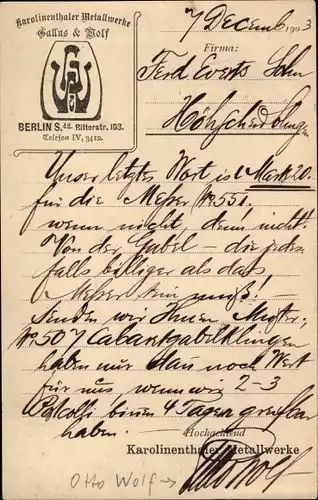 Karolinenthaler Metallwerke
Gallus & Wolf
BERLIN S. 42. Ritterstr. 103.
Telefon IV, 3412.
7 Decemb 1903
Firma:
Ferd Everts Sohn
Höhscheid Solingen
Unser letztes Wort ist Mark 20.
für die Messer No. 551.
wenn nicht, denn nicht!
Von der Gabel – die jeden-
falls billiger als das
Messer sein muß!
senden wir Ihnen Muster.
No. 507
haben nur dann noch Wert
für uns wenn wir 2–3
Postcolli binnen 4 Tagen greifbar
haben.
Hochachtend
Karolinenthaler Metallwerke
Otto Wolf
Otto Wolf →